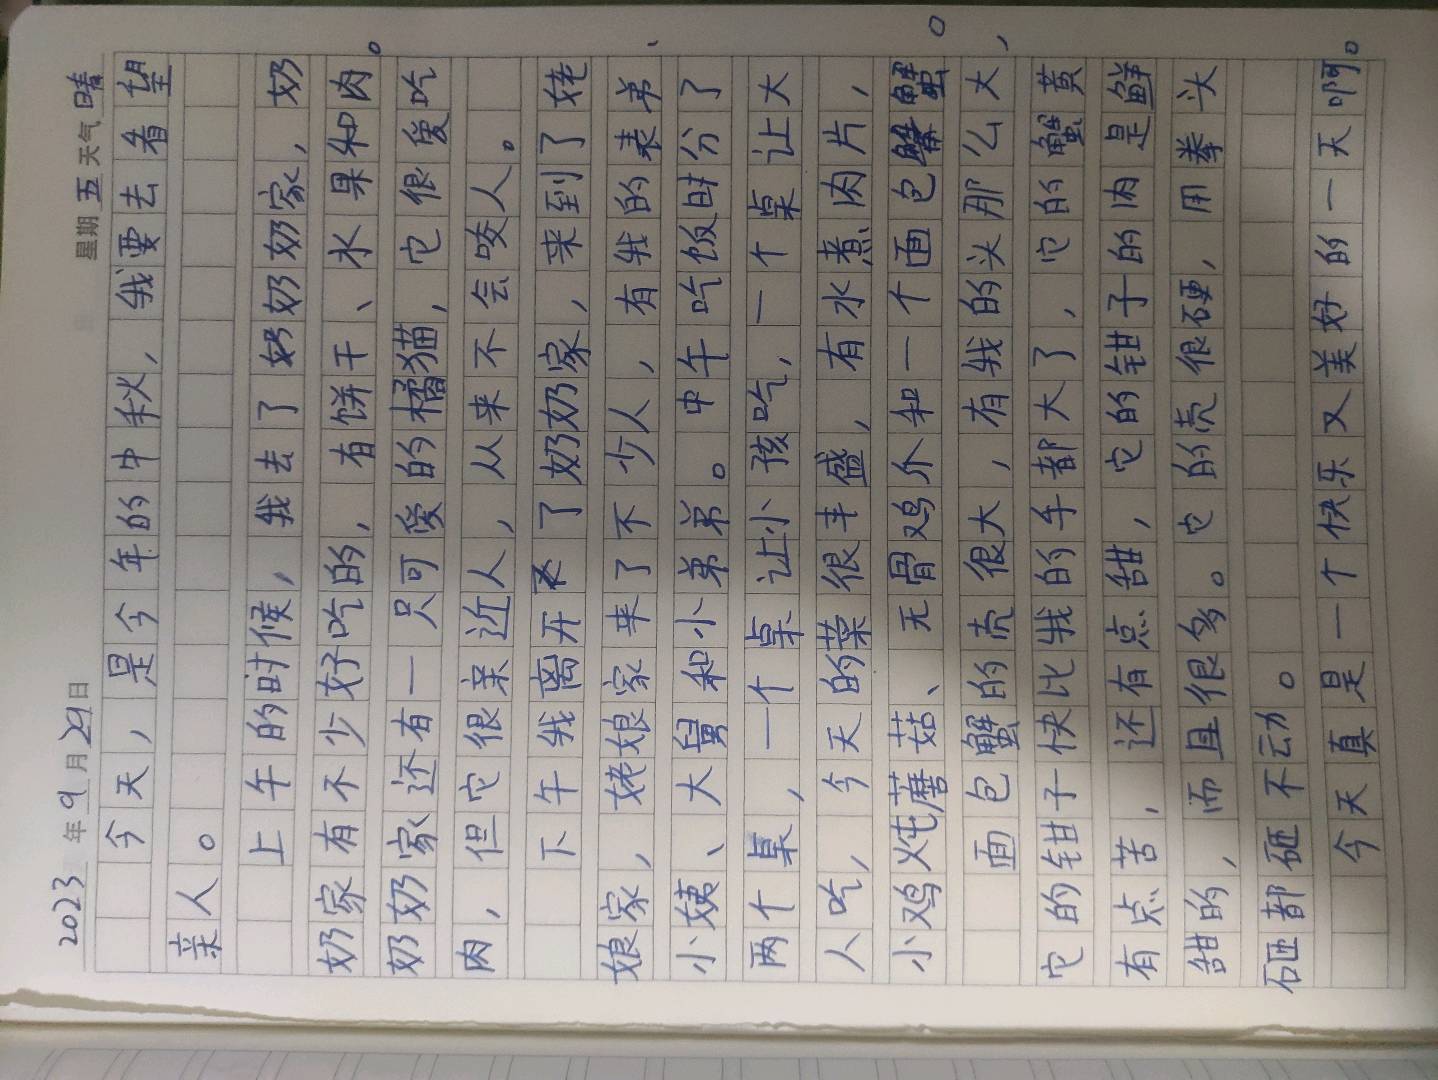 2023年9月29日 星期五 天气晴
今天，是今年的中秋，我要去看望
亲人。
上午的时候，我去了奶奶奶家，奶
奶家有不少好吃的，有饼干、水果和肉。
奶奶家还有一只可爱的橘猫，它很爱吃
肉，但它很亲近人，从来不会咬人。
下午我离开了奶奶家，来到了姥
娘家，姥娘家来了不少人，有我的表弟、
小姨、大舅和小弟弟。中午吃饭时分了
两个桌，一个桌让小孩吃，一个桌让大
人吃，今天的菜很丰盛，有水煮肉片，
小鸡炖蘑菇、无骨鸡爪和一个面包蟹。
面包蟹的壳很大，有我的头那么大，
它的钳子快比我的手都大了，它的蟹黄
有点苦，还有点甜，它的钳子的肉是鲜
甜的，而且很多。它的壳很硬，用拳头
砸都砸不动。
今天真是一个快乐又美好的一天啊。